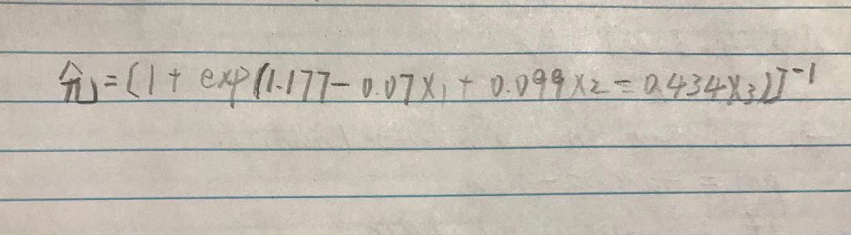 π̂ = [1 + exp(1.177 - 0.07X₁ + 0.099X₂ - 0.434X₃)]⁻¹